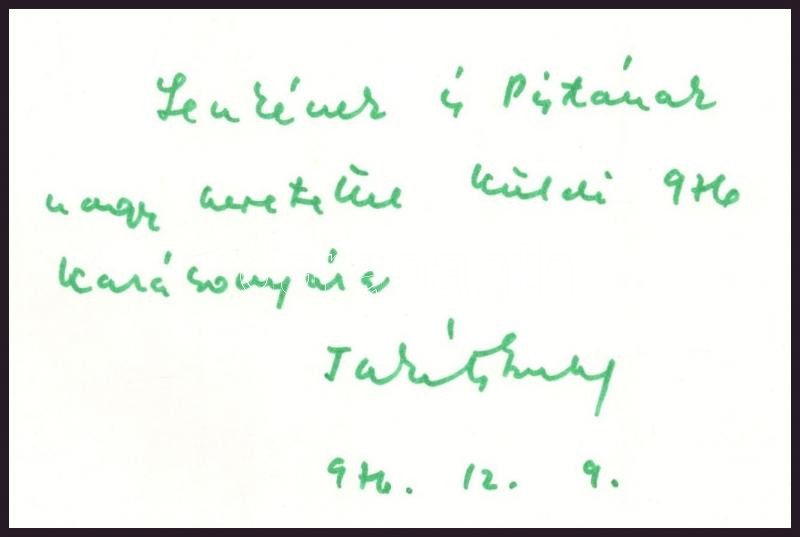 Lenkének és Pistának
nagy szeretettel küldi 976
karácsonyára
Takáts Gyula
976. 12. 9.